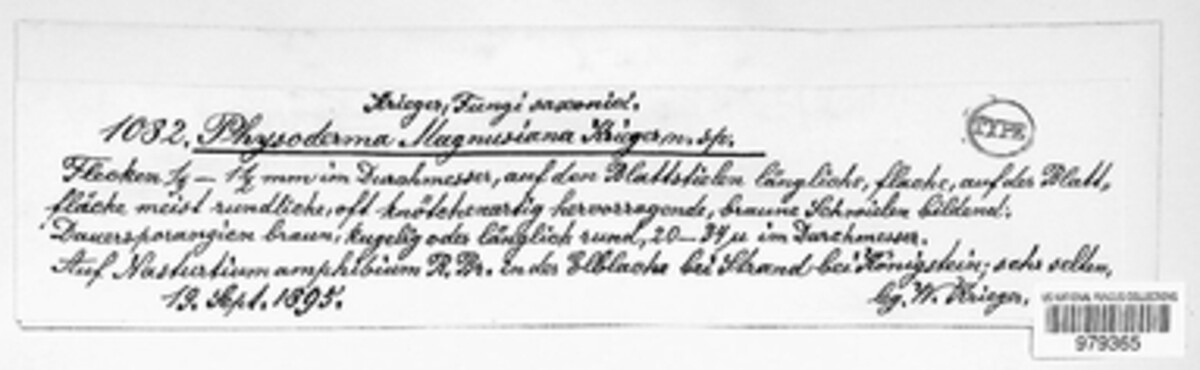 Krieger, Fungi saxonici.
1082. Physoderma Magnusiana Krieger, n. sp.
TYPE
Flecken ½ — 1½ mm im Durchmesser, auf den Blattstielen längliche, flache, auf der Blatt-
fläche meist rundliche, oft knötchenartig hervorragende, braune Schwielen bildend.
Dauersporangien braun, kugelig oder länglich rund, 20—34 µ im Durchmesser.
Auf Nasturtium amphibium R. Br. in der Elblache bei Strand bei Königstein; sehr selten,
19. Sept. 1895.
lg. W. Krieger.
US NATIONAL FUNGUS COLLECTIONS
979365